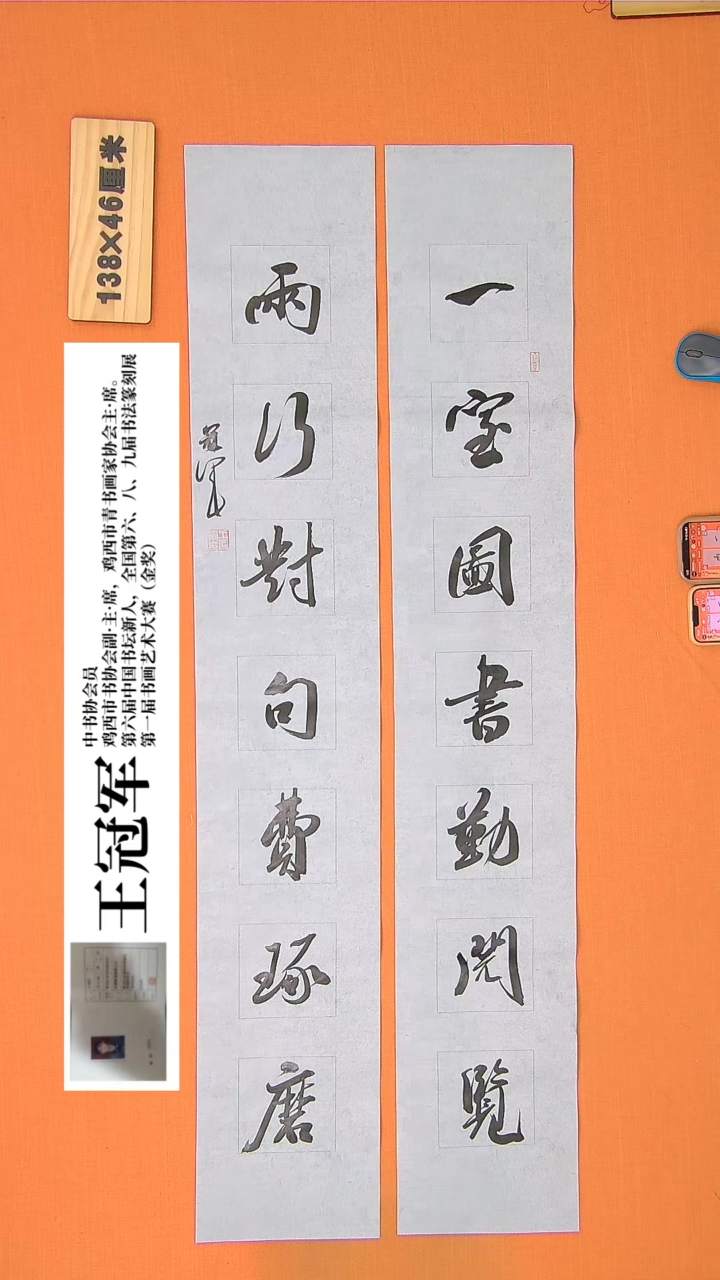 一室圖書勤閱覽
兩行對句費琢磨
冠軍
138×46厘米
中书协会员
鸡西市书协会副·主·席，鸡西市青书画家协会主·席。
第六届中国书坛新人，全国第六、八、九届书法篆刻展
第一届书画艺术大赛（金奖）
王冠军